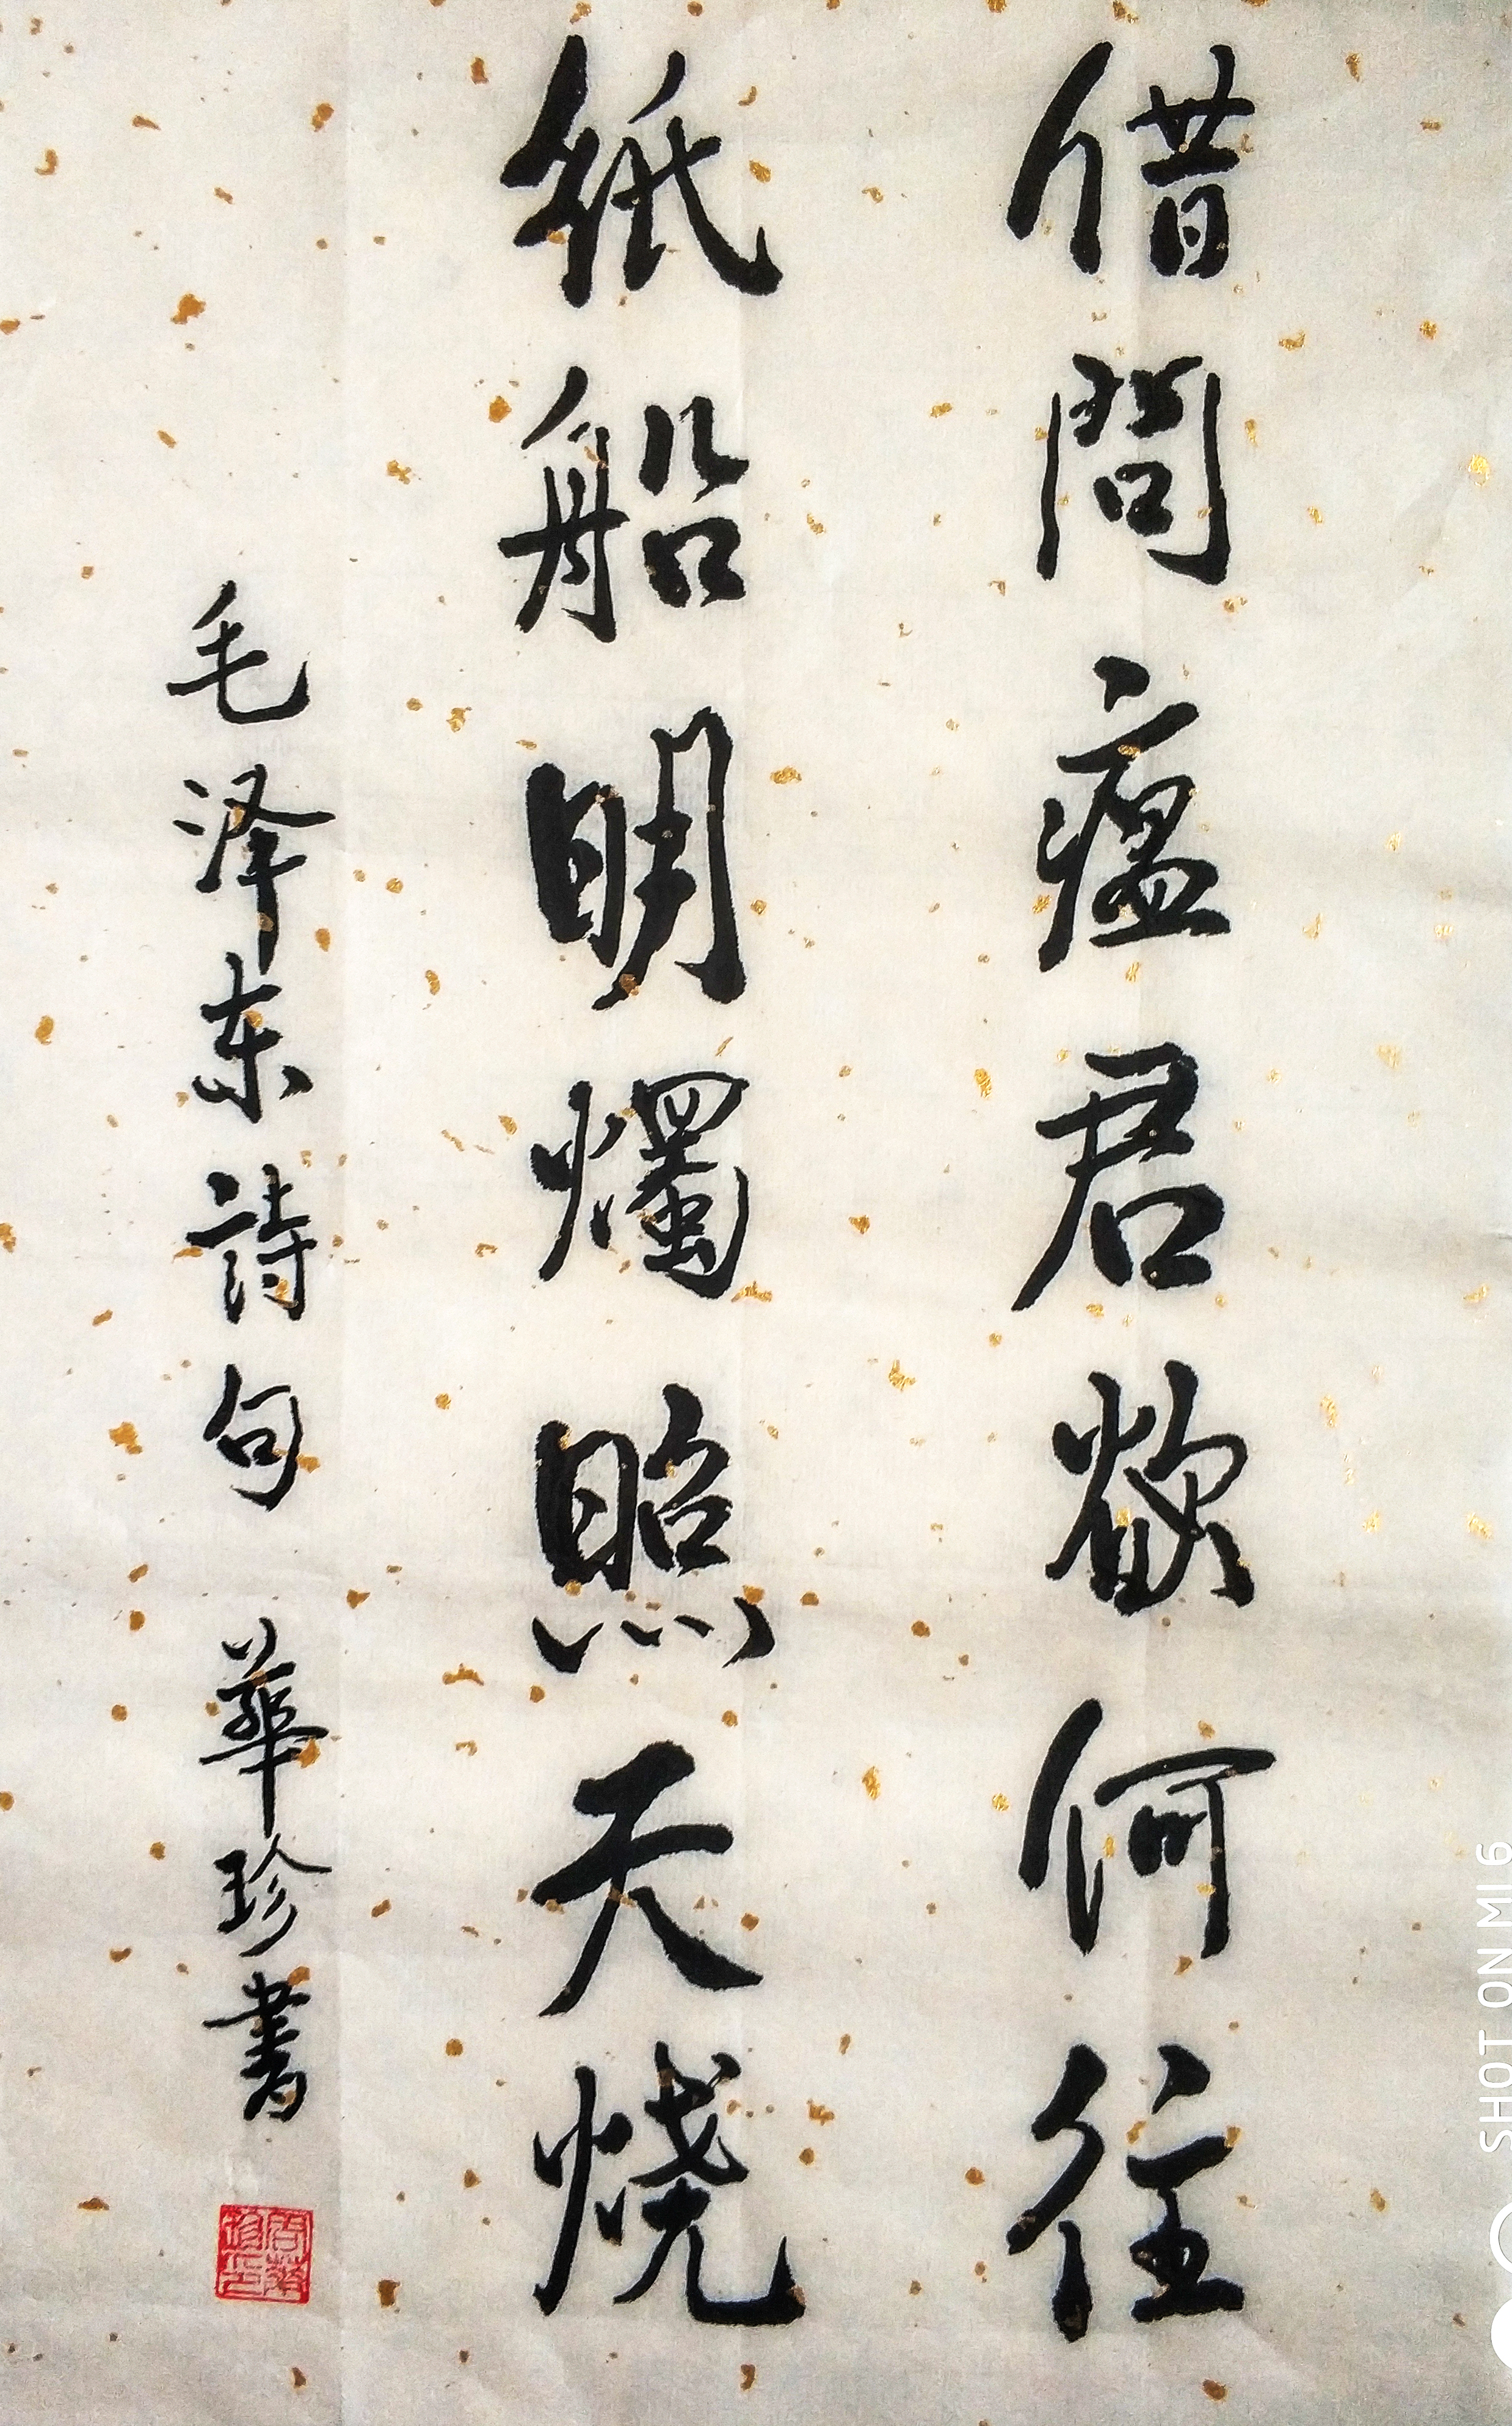 借問瘟君欲何往
紙船明燭照天燒
毛泽东詩句 華珍書
SHOT ON MI 6